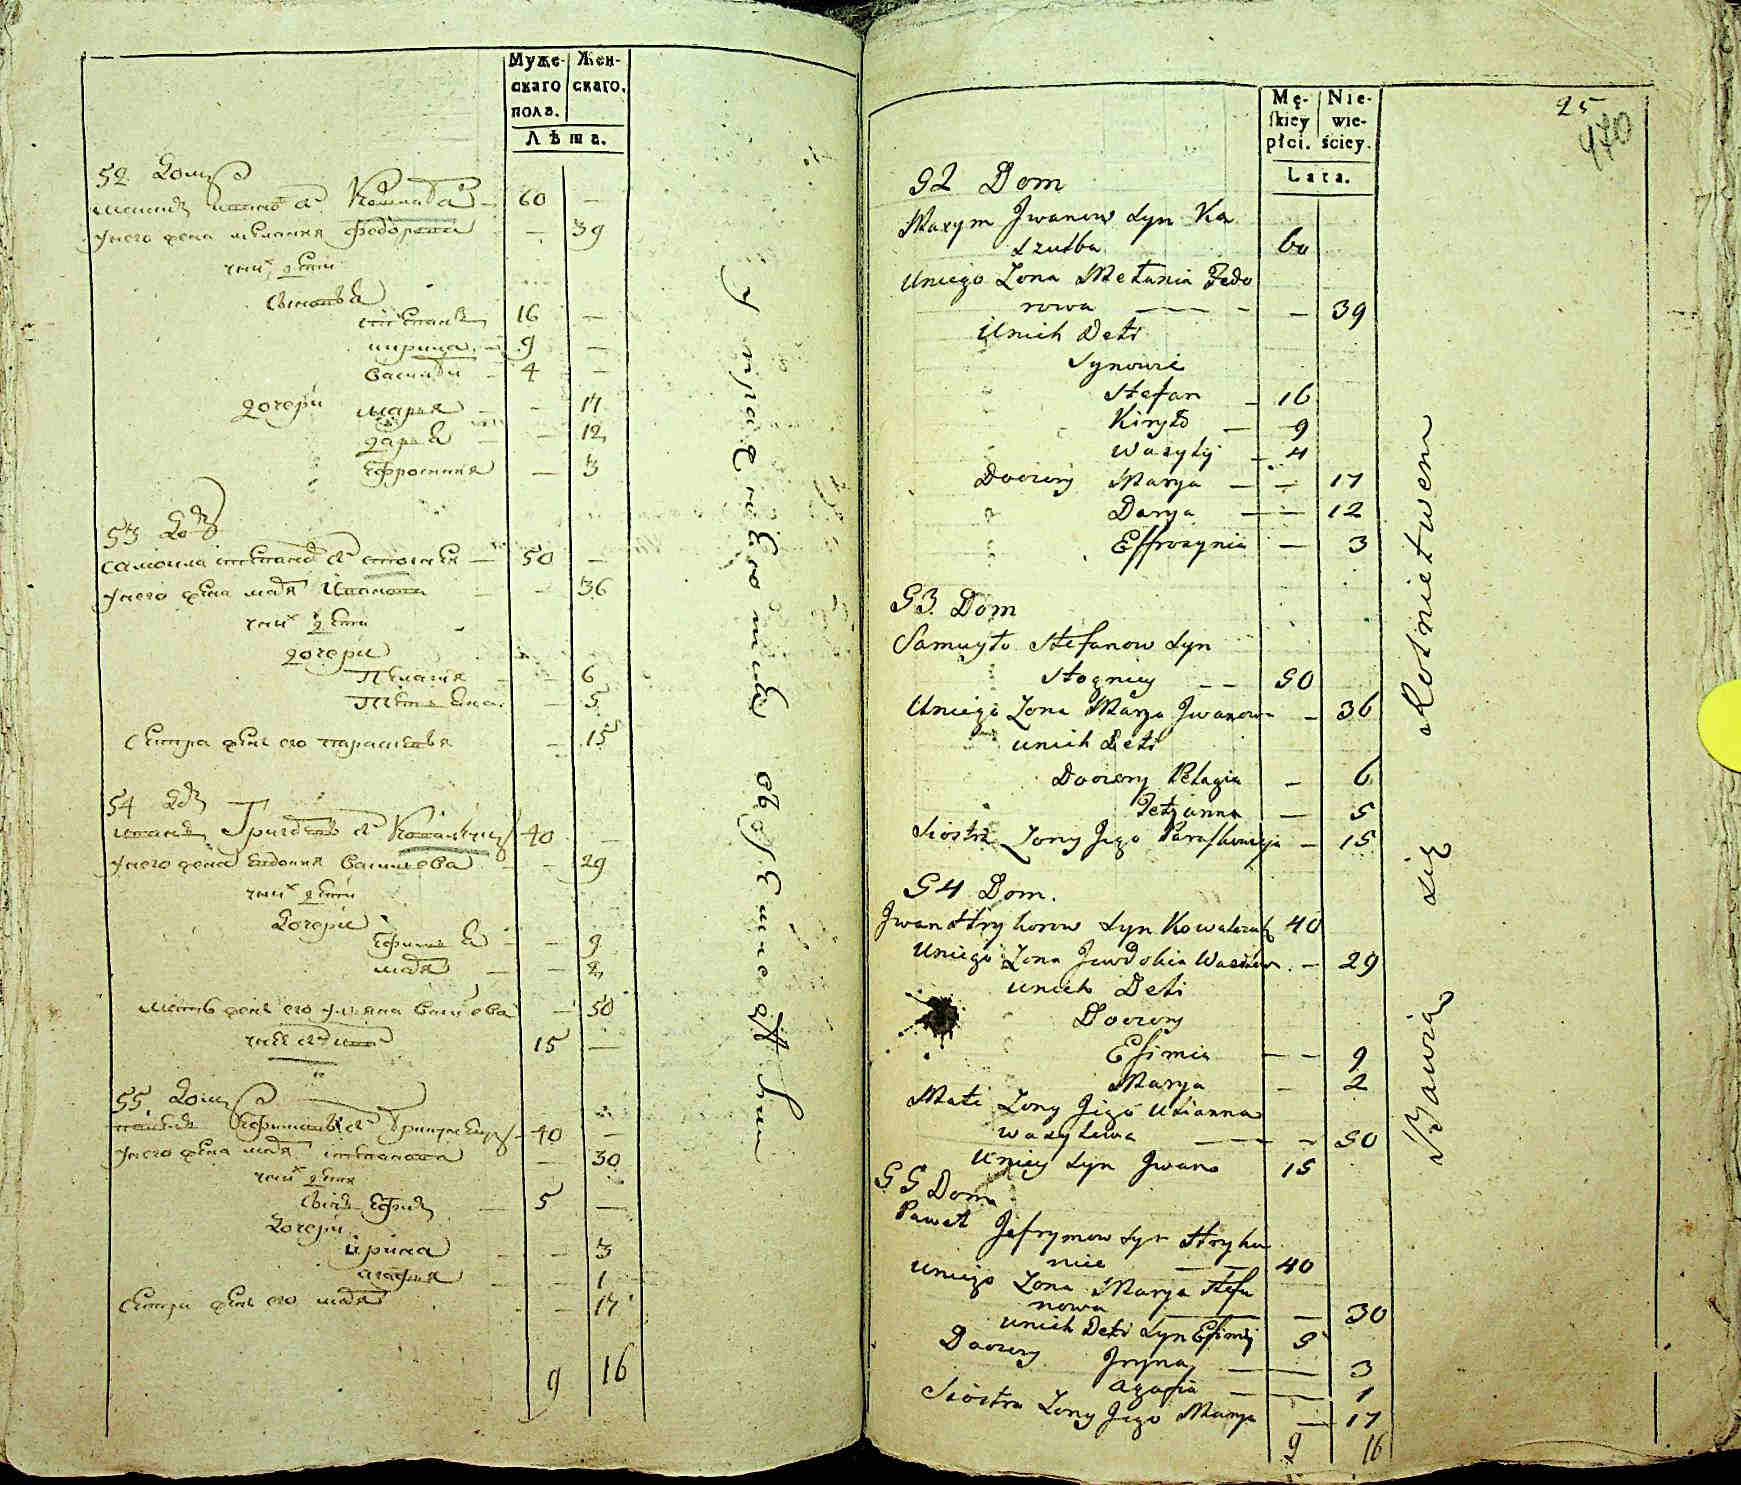 Муже-
скаго
пола.
Жен-
скаго.
Лѣта.
52 Домъ
60 —
у него жена мелания федорова — 39
у них дети
Сыновья
степанъ 16 —
кирила 9 —
василей 4 —
дочери марья — 17
дарья — 12
ефросиния — 3
53 дом
самоила степановъ сынъ 50 —
у него жена марья иванова — 36
у них дети
дочери
Пелагия — 6
Татьяна — 5
Сестра жены его параскевья — 15
54 дом
иванъ Григорьевъ сынъ Ковальчукъ 40 —
у него жена евдокия васильева — 29
у них дети
Дочери
ефимья — 9
марья — 2
мать жены его ульяна васильева — 50
у ней сынъ иванъ 15 —
55 Домъ
павелъ ефимовъ сынъ 40 —
у него жена марья степанова — 30
у них дети
сынъ ефимъ 5 —
Дочери
ирина — 3
агафья — 1
Сестра жены его марья — 17
9 16
Mę-
skiey
płci.
Nie-
wie-
ściey.
Lata.
25
470
52 Dom
Maxym Jwanow Syn Ka
szulba 60
Uniego Zona Mełania Fedo
rowa — — 39
Unich Deti
Synowie
Stefan — 16
Kiryło — 9
Wasyly — 4
Doczery Marya — — 17
Darya — — 12
Effrozynia — 3
53 Dom
Samuyło Stefanow Syn
Stogniy — — 50
Uniego Zona Marya Jwanow — 36
unich Deti
Doczery Pelagia — 6
Tetyanna — 5
Siostra Zony Jego Paraskewija — 15
54 Dom.
Jwan Hryhorow Syn Kowalczuk 40
Uniego Zona Jewdokia Wasilew — 29
unich Deti
Doczery
Efimia — — 9
Marya — 2
Mati Zony Jego Ulianna
Wasylewa — — 50
Uniey Syn Jwan 15
55 Dom
Paweł Jefrymow Syn Hryhu
nie — 40
Uniego Zona Marya Stefa
nowa — — 30
unich Deti Syn Efimij 5
Doczery Jryna — — 3
Agafia — — 1
Siostra Zony Jego Marya — 17
9 16
Bawią się Rolnictwem